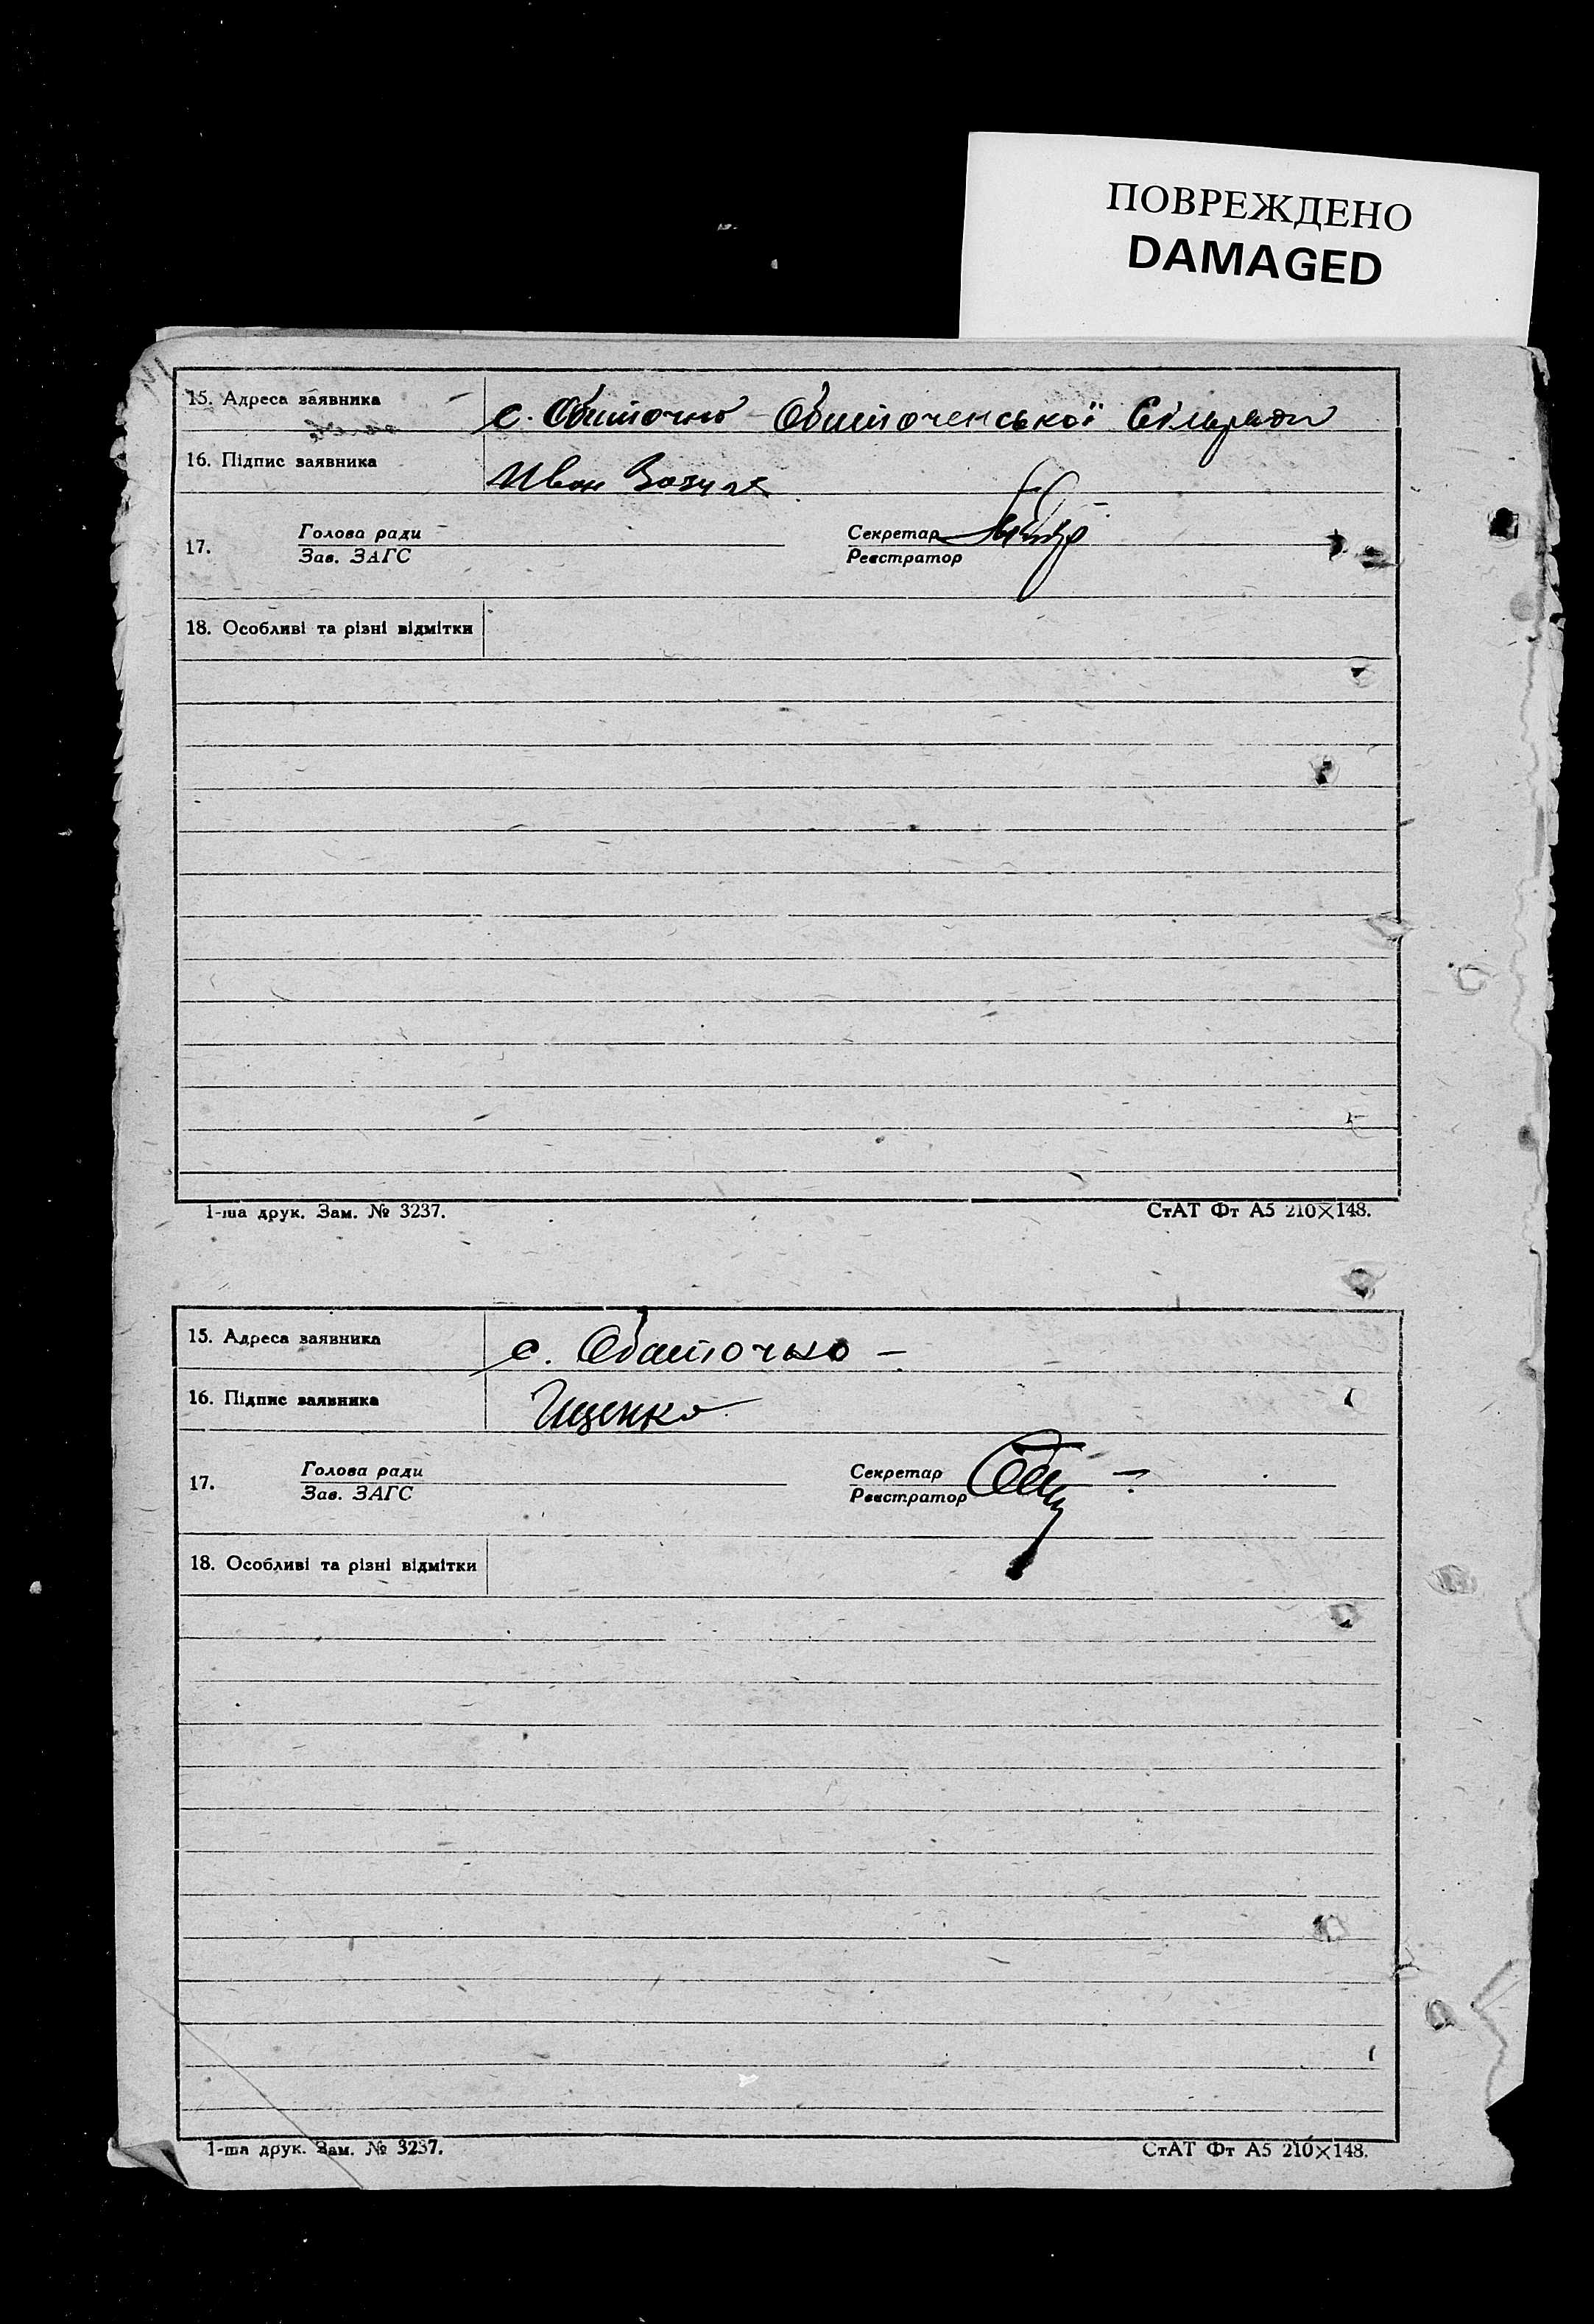 ПОВРЕЖДЕНО
DAMAGED
15. Адреса заявника
с. Обиточно Обиточенської Сільради
16. Підпис заявника
Иван
17.
Голова ради
Зав. ЗАГС
Секретар
Реєстратор
18. Особливі та різні відмітки
1-ша друк. Зам. № 3237.
СтАТ Фт А5 210×148.
15. Адреса заявника
с. Обиточно –
16. Підпис заявника
Ищенко
17.
Голова ради
Зав. ЗАГС
Секретар
Реєстратор
18. Особливі та різні відмітки
1-ша друк. Зам. № 3237.
СтАТ Фт А5 210×148.